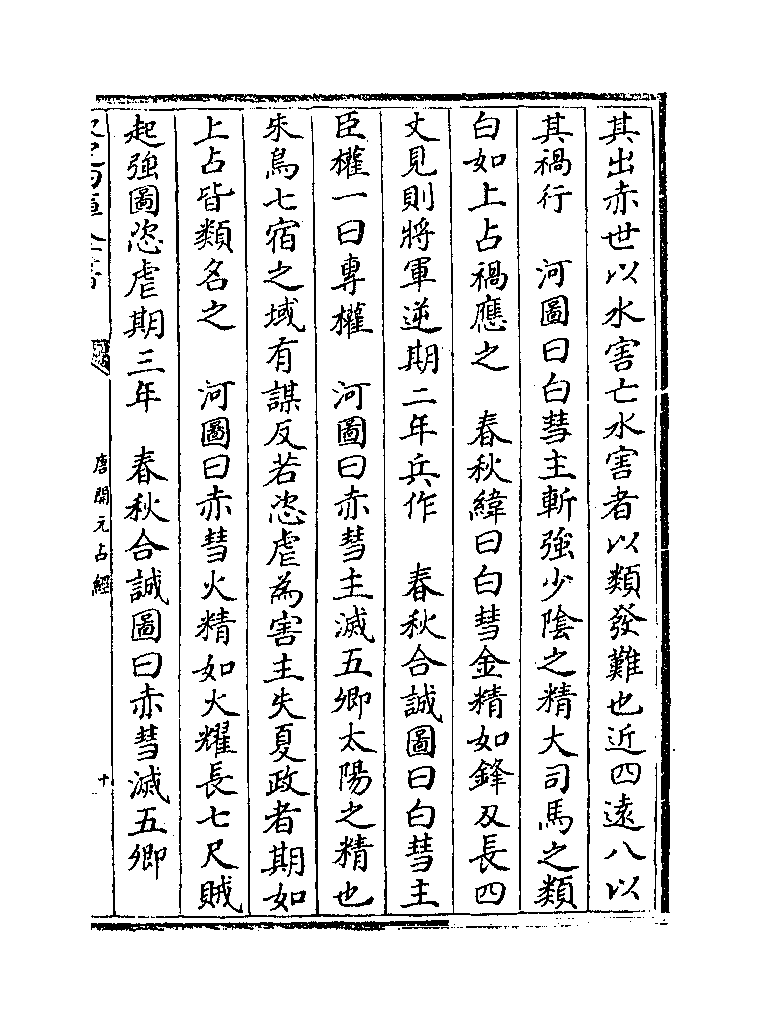 其出赤世以水害亡水害者以類發難也近四遠八以
其禍行　河圖曰白彗主斬強少陰之精大司馬之類
白如上占禍應之　春秋緯曰白彗金精如鋒刄長四
丈見則將軍逆期二年兵作　春秋合誠圖曰白彗主
臣權一曰專權　河圖曰赤彗主滅五卿太陽之精也
朱鳥七宿之域有謀反若恣虐為害主失夏政者期如
上占皆類名之　河圖曰赤彗火精如火耀長七尺賊
起強圖恣虐期三年　春秋合誠圖曰赤彗滅五卿
唐開元占經
十